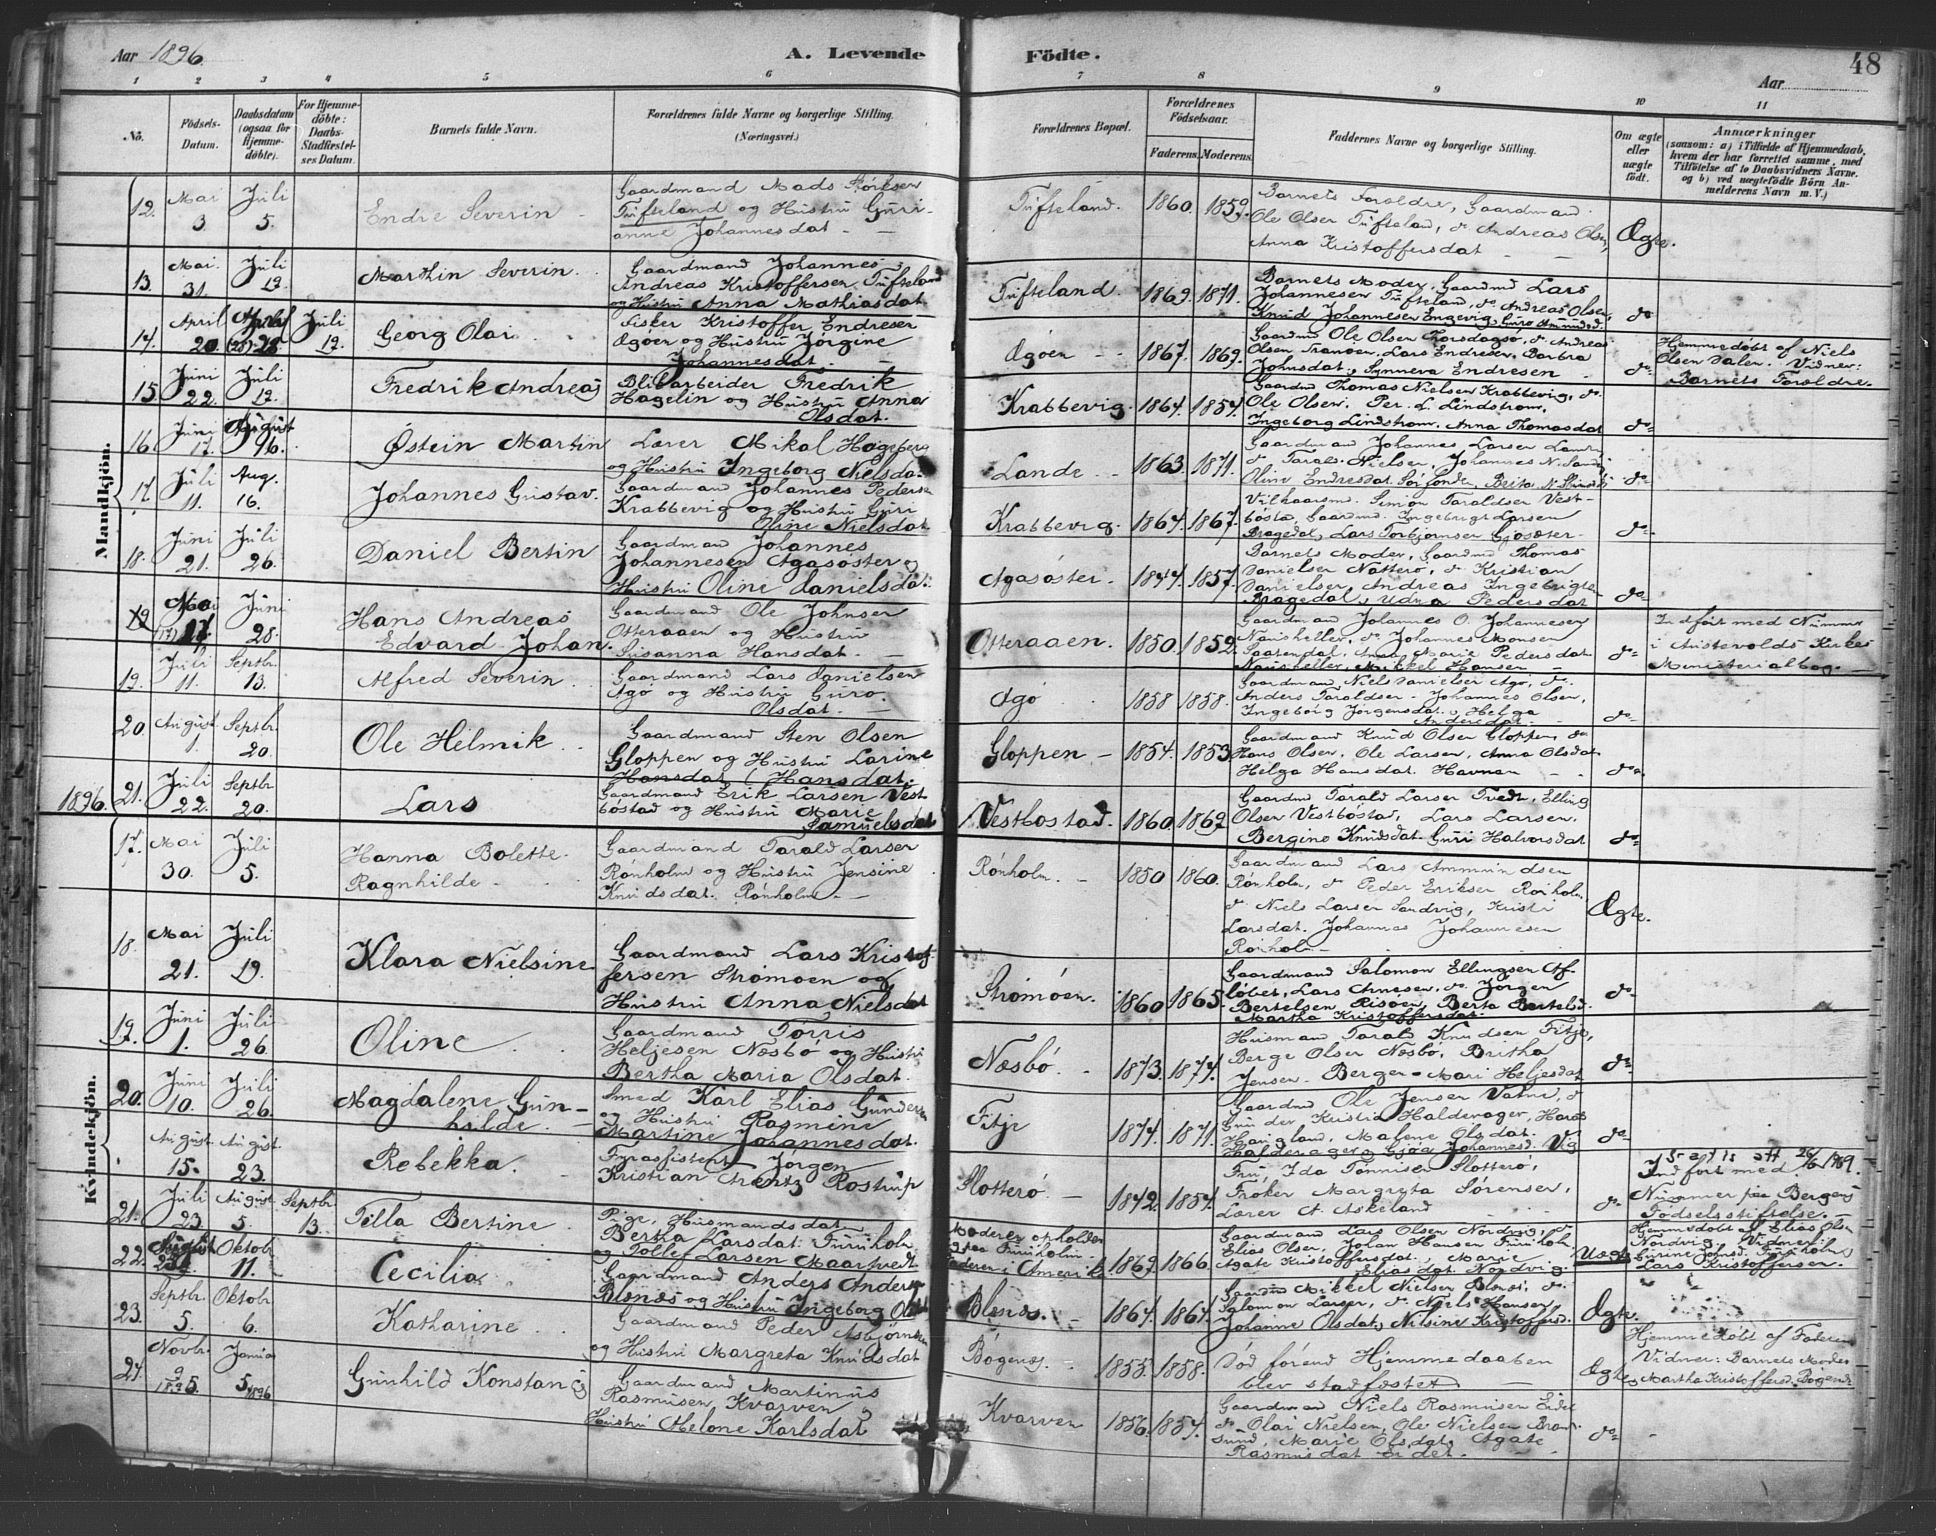 Aar 1896.
A. Levende
Födte.
Aar
48
1 2 3 4 5 6 7 8 9 10 11
No.
Födsels-Datum.
Daabsdatum (ogsaa for Hjemme-döbte).
For Hjemme-döbte: Daabs-Stadfæstel-ses Datum.
Barnets fulde Navn.
Forældrenes fulde Navne og borgerlige Stilling.
(Næringsvei.)
Forældrenes Bopæl.
Forældrenes Födselsaar.
Faderens. Moderens.
Faddernes Navne og borgerlige Stilling.
Om ægte eller uægte födt.
Anmærkninger
(saasom: a) i Tilfælde af Hjemmedaab,
hvem der har forrettet samme, med
Tilföielse af to Daabsvidners Navne.
og b) ved uægtefödte Börn An-
melderens Navn m. V.)
Mandkjön.
12. Mai 3. Juli 5. Endre Severin
Gaardmand Mads
Tufteland og Hustru Guri-
anne Johannesdat.
Tufteland. 1860. 1859.
Barnets Forældre, Gaardmand
Ole Olsen Tufteland, do Andreas Olsen,
Anna Kristoffersdat
Ægte.
13. Mai. 31. Juli 12. Marthin Severin.
Gaardmand Johannes
Andreas Kristoffersen Tufteland
og Hustru Anna Mathiasdat
Tufteland. 1869. 1871.
Barnets Moder, Gaardmd Lars
Johannesen Tufteland, do Andreas Olsen,
Knud Johannesen Engevig, Guro
do
14. April 20. 28. Juli 12. Georg Olai
Fisker Kristoffer Endresen
Øgøen og Hustru Jørgine
Johannesdat.
Øgøen 1867. 1869.
Gaardmd Ole Olsen do Andreas
Olsen Lars Endresen, Barbra
Johnsdat, Synneva Endresen
do
Hjemmedøbt af Niels
Olsen Vidner:
Barnets Forældre.
15. Juni 22. Juli 12. Fredrik Andreas
Fredrik
Hagelin og Hustru Anna
Olsdat.
Krabbevig. 1864. 1857.
Gaardmd Thomas Nielsen Krabbevig, do
Ole Olsen, Per. L. Lindstrøm,
Ingeborg Lindstrøm, Anna Thomasdat
do
16. Juni 17. August 16. Østein Martin
Lærer Mikal Hageberg
og Hustru Ingeborg Nielsda.
Lande 1863. 1871.
Gaardmand Johannes Larsen
do Tarald Nielsen, Johannes N.
Oline Endresdat
do
17. Juli 11. Aug. 16. Johannes Gustav.
Gaardmand Johannes Pedersen
Krabbevig og Hustru Guri
Oline Nielsdat
Krabbevig. 1864. 1867.
Simon Taraldsen Vest-
bøsta, Gaardmd. Ingebrigt Larsen
Bragedal, Lars Torbjørnsen
do
18. Juni 21. Juli 26. Daniel Bertin
Gaardmand Johannes
Johannesen Agasøster og
Hustru Oline Danielsdat.
Agasøster. 1844. 1857.
Barnets Moder, Gaardmd Thomas
Danielsen Natterø, do Kristian
Danielsen, Andreas Ingebrigts
Bragedal, Pedersdat
do
Mai 17. Juni 28. Hans Andreas
Edvard Johan.
Gaardmand Ole Johnsen
Otteraaen og Hustru
Susanna Hansdat.
Otteraaen. 1850. 1852.
Gaardmand Johannes O. Johannesen
do Johannes Monsen
Anna Marie Pedersdat
Mikkel Hansen
do
Indført med Nummer
i Austevolds Kirkes
Ministerialbog.
19. Juli 11. Septbr. 13. Alfred Severin
Gaardmand Lars Danielsen
Agø og Hustru Guro
Olsdat.
Agø 1858 1858.
Gaardmand Niels Danielsen Agø, do
Anders Taraldsen Johannes Olsen,
Ingeborg Jørgensdat. Helga
Andersdat.
do
20. August 1. Septbr. 20. Ole Helmik
Gaardmand Sten Olsen
Gloppen og Hustru Larine
Hansdat
Gloppen 1854. 1853
Gaardmand Knud Olsen Gloppen, do
Hans Olsen, Ole Larsen, Anna Olsdat
Helga Hansdat. Havnen
do
1896. 21. Juli 22. Septbr 20. Lars
Gaardmand Erik Larsen Vest
bøstad og Hustru Marie
Samuelsdat
Vestbostad. 1860. 1862
Gaardmd Tarald Larsen Tvedt, Elling
Olsen Vestbøstad, Lars Larsen,
Bergine Knudsdat. Guri Halvorsdat
do
Kvindekjön.
17. Mai 30. Juli 5. Hanna Bolette
Ragnhilde
Gaardmand Tarald Larsen
Rønholm og Hustru Jensine
Knudsdat. Rønholm
Rønholm. 1850 1860.
Gaardmand Lars Ammundsen
Rønholm, do Peder Eriksen Rønholm,
do Niels Larsen Sandvig, Kristi
Larsdat. Johannas Johannesen
Rønholm
Ægte.
18. Mai 21. Juli 19. Klara Nielsine
Gaardmand Lars Kristof
fersen Strømøen og
Hustru Anna Nielsdat
Strømøen. 1860 1865.
Gaardmand Salomon Ellingsen Af-
løbet, Lars Arnesen, do Jørgen
Bertelsen Risøen, Berta Bertelsd.
Martha Kristoffersdat.
do
19. Juni 1. Juli 26. Oline
Gaardmand Torris
Heljesen Næsbø og Hustru
Bertha Maria Olsdat.
Næsbø. 1873. 1874.
Husmand Tarald Knudsen Fitje,
Berge Olsen Næsbø, Britha
Jensen. Berger Mari Heljesdat
do
20. Juni 10. Juli 26. Magdalene Gun-
hilde.
Smed Karl Elias Gundersen
og Hustru Rasmine
Martine Johannesdat.
Fitje 1874. 1871.
Gaardmd Ole Jensen Vatne, do
Gunder Kristian Haldorager, Hans
Haugland, Malene Olsdat.
Haldorager, Gjøa Johannesd.
do
August 15. August. 23. Rebekka.
Fyrassistent Jørgen
Kristian Arentz Rostrup
Slotterø. 1842. 1854.
Fru Ida Tønnisen Slotterø,
Frøken Margreta Sørensen,
Lærer A. Askeland
do
Indført med
Nummer paa Bergens
Fødselsstiftelse.
21. Juli 23. August. 5. Septbr. 13. Tilla Bertine
Pige, Husmandsdat.
Bertha Larsdat. Furuholm
og Tollef Larsen Maartvedt
Moderen opholder
sig paa Furuholm
Faderen i Amerika 1869. 1866.
Gaardmand Lars Olsen Nordvig, do
Elias Olsen, Johan Hansen Furuholm
Agate Kristoffersdat. Marie
Eliasdat. Nordvig.
Uægte
Hjemmedøbt af Elias Olsen
Nordvig, Vidner:
Furuholm
Lars Kristoffersen.
22. August Oktobr. 11. Cecilia
Gaardmand Anders Anders
Blænæs og Hustru Ingeborg
Blænæs. 1864. 1864.
Gaardmd Mikkel Nielsen Blænæs, do
Salomon Larsen, do Niels Hansen
Johanne Olsdat, Nilsine Kristoffersd.
Ægte.
23. Septbr. 5. Oktobr. 6. Katharine
Gaardmand Peder Asbjørnsen
og Hustru Margreta Knudsdat
Bøgenes. 1855. 1858.
Død førend Hjemmedaaben
blev stadfæstet
Ægte
Hjemmedøbt af Faderen
Vidner: Barnets Moder
Martha Kristoffersd. Bøgenes
24. Novbr. 9 1895. Januar 5 1896 Gunhild Konstanse
Gaardmand Martinus
Rasmussen Kvarven og
Hustru Helene Karlsdat
Kvarven 1856. 1857.
Gaardmand Niels Rasmussen Eidet
do Olai Nielsen, Ole Nielsen
sund, Marie Olsdat, Agate
Rasmusdat eidet.
do